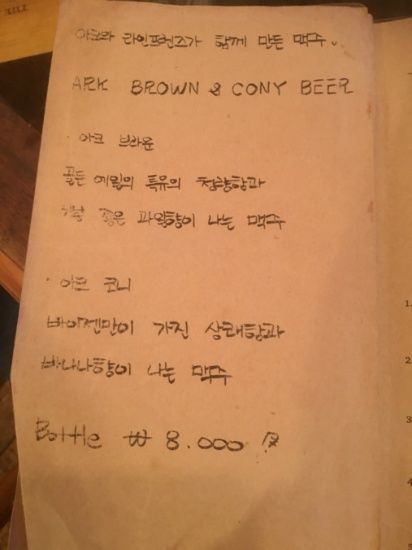 아크와 라인프렌즈가 함께 만든 맥주.
ARK BROWN & CONY BEER
· 아크 브라운
골든 에일의 특유의 청량함과
좋은 과일향이 나는 맥주
· 아크 코니
바이젠만이 가진 상쾌함과
바나나향이 나는 맥주
Bottle ₩ 8.000
XIII